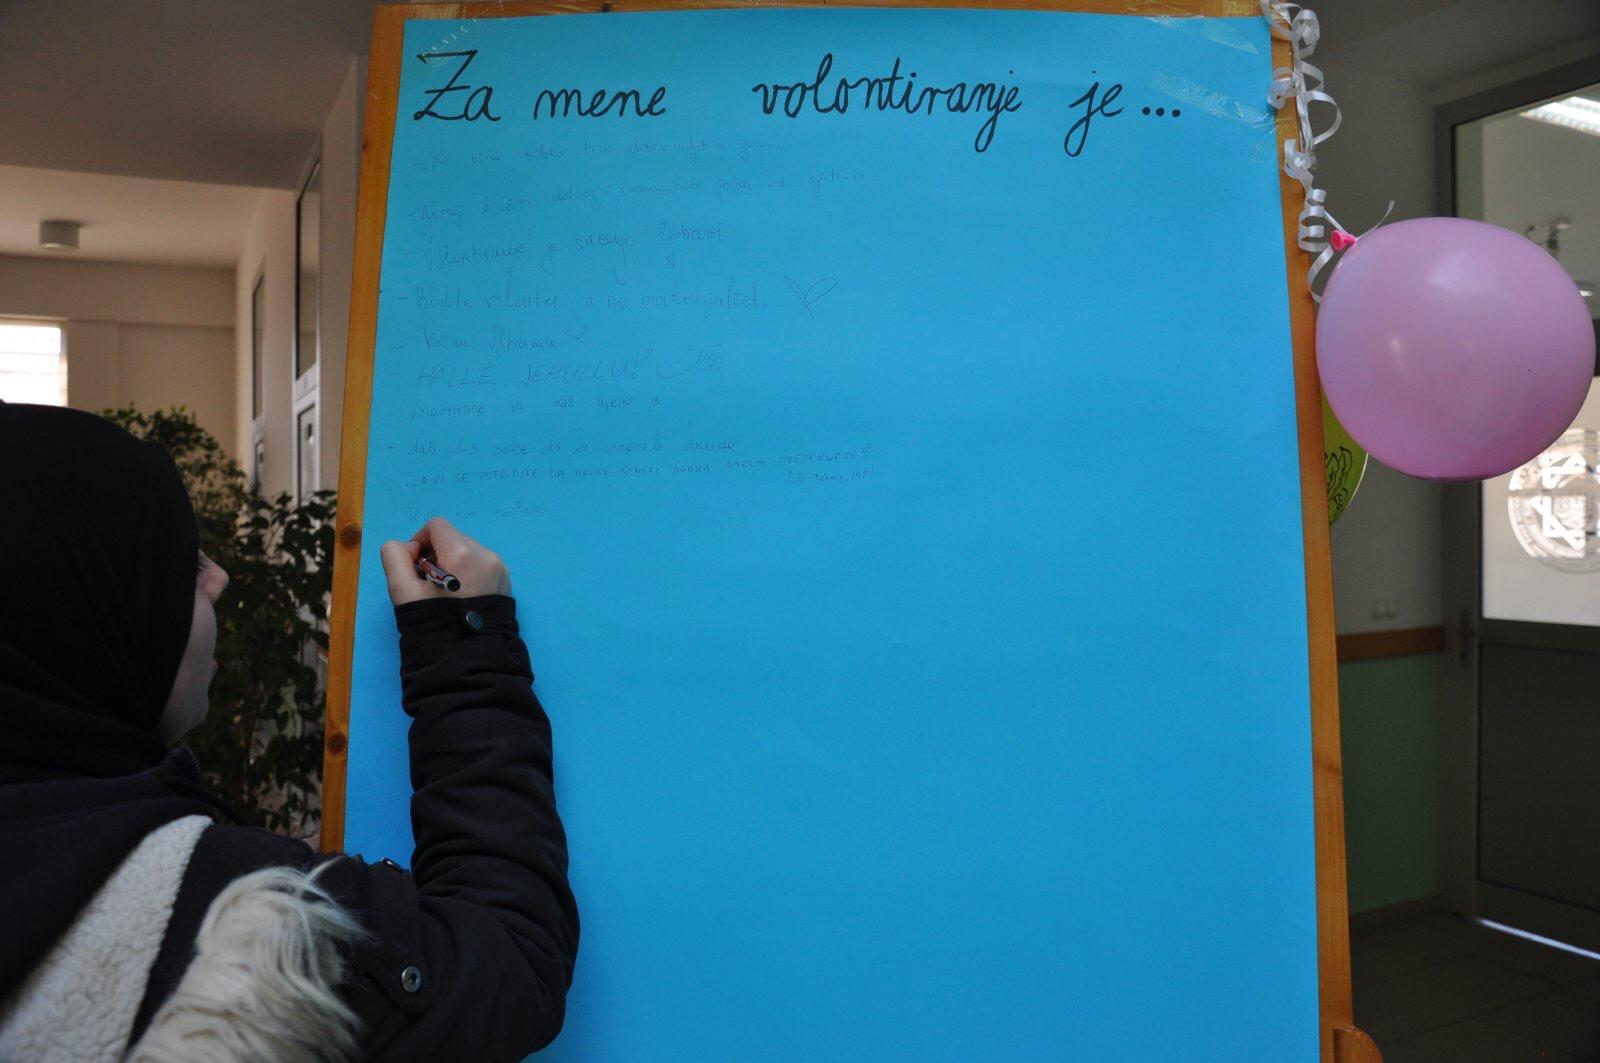 Za mene volontiranje je...
- "Ko učini koliko trun dobra vidjet će ga..."
- Nemoj tražiti dobrog insana, budi jedan od njih...
- Volontiranje je širenje ljubavi
- Budite volonteri, a ne materijalisti
- Volim Ilhama
- HALLE JEHULLU! IIIb
- volontiranje je baš lijepo
- dati dio sebe da bi usrećili druge
...A VI SE POTRUDITE DA DRUGE, ČINEĆI DOBRA DJELA PRETEKNETE!
(El-Bekara, 148)